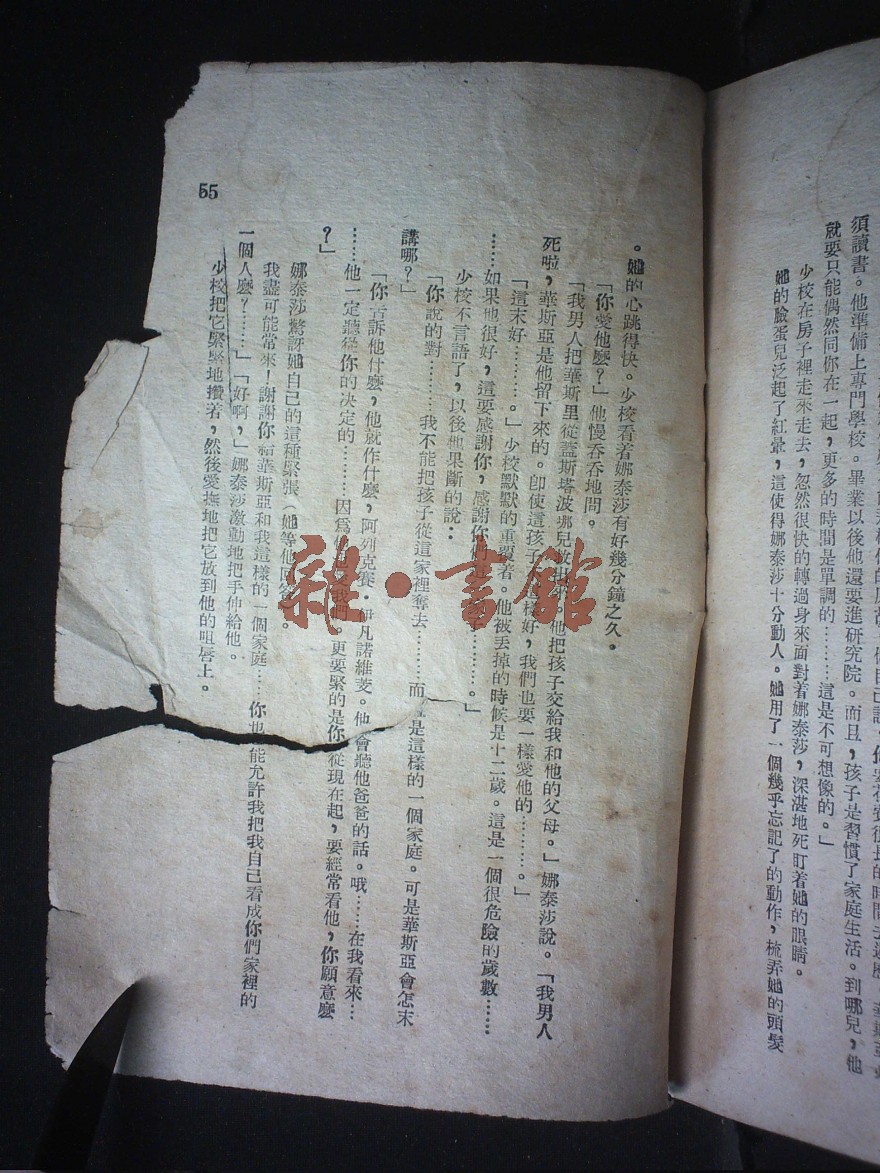 須讀書。他準備上專門學校。畢業以後他還要進研究院。而且，孩子是習慣了家庭生活。到哪兒，他
就要只能偶然同你在一起，更多的時間是單調的………這是不可想像的。」
少校在房子裡走來走去，忽然很快的轉過身來面對着娜泰莎，深湛地死盯着她的眼睛。
她的臉蛋兒泛起了紅暈，這使得娜泰莎十分動人。她用了一個幾乎忘記了的動作，梳弄她的頭髮
。她的心跳得快。少校看着娜泰莎有好幾分鐘之久。
「你愛他麽？」他慢吞吞地問。
「我男人把華斯里從蓋斯塔波哪兒救出來。他把孩子交給我和他的父母。」娜泰莎說。「我男人
死啦，華斯亞是他留下來的。即使這孩子 樣好，我們也要一樣愛他的………。」
「這末好………。」少校默默的重覆着。他被丟掉的時候是十二歲。這是一個很危險的歲數……
……如果他很好，這要感謝你，感謝你們 ………。」
少校不言語了，以後他果斷的說：
「你說的對………我不能把孩子從這家裡奪去………而 是這樣的一個家庭。可是華斯亞會怎末
講哪？」
「你告訴他什麽，他就作什麽，阿列克賽・伊凡諾維芠。他 會聽他爸爸的話。哦……在我看來…
……他一定聽從你的決定的……因爲 他 我們。更要緊的是你 從現在起，要經常看他，你願意麽
？」
娜泰莎驚訝她自己的這種緊張（她等他回答 。
我盡可能常來！謝謝你給華斯亞和我這樣的一個家庭……你也 能允許我把我自己看成你們家裡的
一個人麽？……」「好啊，」娜泰莎激動地把手伸給他。
少校把它緊緊地攢着，然後愛撫地把它放到他的咀唇上。
55
雜・書館